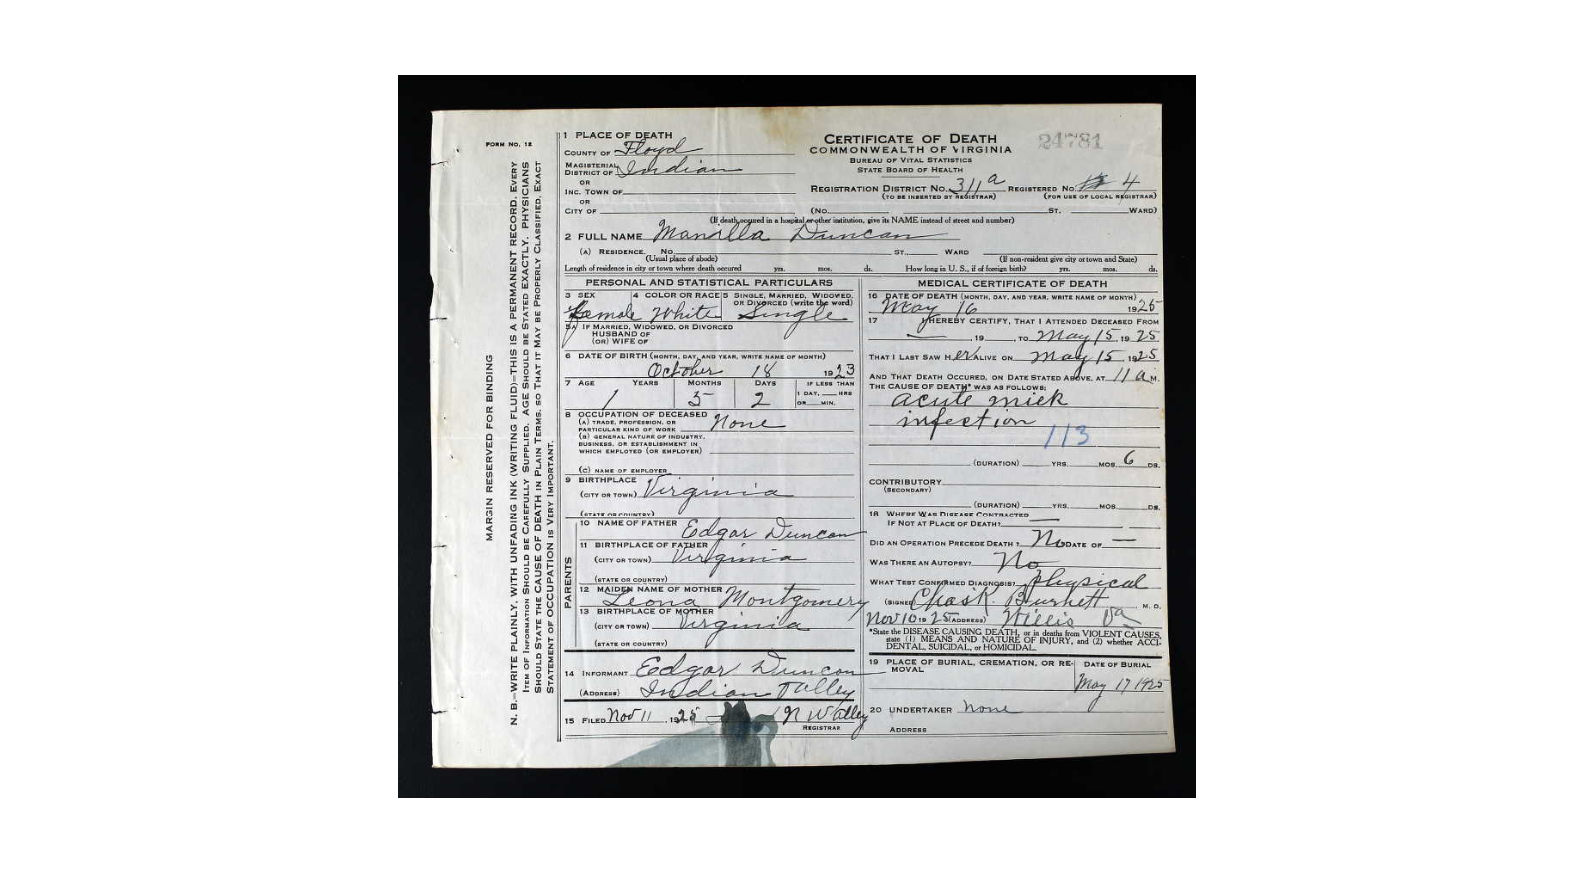 FORM No. 12
MARGIN RESERVED FOR BINDING
N. B.—WRITE PLAINLY, WITH UNFADING INK (WRITING FLUID)—THIS IS A PERMANENT RECORD. EVERY
ITEM OF INFORMATION SHOULD BE CAREFULLY SUPPLIED. AGE SHOULD BE STATED EXACTLY. PHYSICIANS
SHOULD STATE THE CAUSE OF DEATH IN PLAIN TERMS, SO THAT IT MAY BE PROPERLY CLASSIFIED. EXACT
STATEMENT OF OCCUPATION IS VERY IMPORTANT.
1 PLACE OF DEATH
COUNTY OF Floyd
MAGISTERIAL
DISTRICT OF Indian
OR
INC. TOWN OF
OR
CITY OF
CERTIFICATE OF DEATH
COMMONWEALTH OF VIRGINIA
BUREAU OF VITAL STATISTICS
STATE BOARD OF HEALTH
24781
REGISTRATION DISTRICT NO. 311a REGISTERED NO. 4
(TO BE INSERTED BY REGISTRAR) (FOR USE OF LOCAL REGISTRAR)
(No. ST. WARD)
(If death occured in a hospital or other institution, give its NAME instead of street and number)
2 FULL NAME Manilla Duncan
(A) RESIDENCE. No. ST., WARD
(Usual place of abode) (If non-resident give city or town and State)
Length of residence in city or town where death occured yrs. mos. ds. How long in U. S., if of foreign birth? yrs. mos. ds.
PERSONAL AND STATISTICAL PARTICULARS
3 SEX 4 COLOR OR RACE 5 SINGLE, MARRIED, WIDOWED,
OR DIVORCED (write the word)
Female White Single
5A IF MARRIED, WIDOWED, OR DIVORCED
HUSBAND OF
(OR) WIFE OF
6 DATE OF BIRTH (MONTH, DAY, AND YEAR, WRITE NAME OF MONTH)
October 18 1923
7 AGE YEARS MONTHS DAYS IF LESS THAN
1 DAY, HRS
OR MIN.
1 5 2
8 OCCUPATION OF DECEASED
(A) TRADE, PROFESSION, OR
PARTICULAR KIND OF WORK None
(B) GENERAL NATURE OF INDUSTRY,
BUSINESS, OR ESTABLISHMENT IN
WHICH EMPLOYED (OR EMPLOYER)
(C) NAME OF EMPLOYER
9 BIRTHPLACE
(CITY OR TOWN) Virginia
(STATE OR COUNTRY)
PARENTS
10 NAME OF FATHER Edgar Duncan
11 BIRTHPLACE OF FATHER
(CITY OR TOWN) Virginia
(STATE OR COUNTRY)
12 MAIDEN NAME OF MOTHER
Leona Montgomery
13 BIRTHPLACE OF MOTHER
(CITY OR TOWN) Virginia
(STATE OR COUNTRY)
14 INFORMANT Edgar Duncan
(ADDRESS) Indian Valley
15 FILED Nov 11, 1925
REGISTRAR
MEDICAL CERTIFICATE OF DEATH
16 DATE OF DEATH (MONTH, DAY, AND YEAR, WRITE NAME OF MONTH)
May 16 1925
17 I HEREBY CERTIFY, THAT I ATTENDED DECEASED FROM
, 19 , TO May 15, 1925
THAT I LAST SAW HER ALIVE ON May 15, 1925
AND THAT DEATH OCCURED, ON DATE STATED ABOVE, AT 11 a M.
THE CAUSE OF DEATH* WAS AS FOLLOWS:
acute
infection
113
(DURATION) YRS. MOS. 6 DS.
CONTRIBUTORY
(SECONDARY)
(DURATION) YRS. MOS. DS.
18 WHERE WAS DISEASE CONTRACTED
IF NOT AT PLACE OF DEATH?
DID AN OPERATION PRECEDE DEATH? No DATE OF —
WAS THERE AN AUTOPSY? No
WHAT TEST CONFIRMED DIAGNOSIS? Physical
(SIGNED) Chas. K. Burnett, M. D.
Nov 10 1925 (ADDRESS) Willis Va
*State the DISEASE CAUSING DEATH, or in deaths from VIOLENT CAUSES,
state (1) MEANS AND NATURE OF INJURY, and (2) whether ACCI-
DENTAL, SUICIDAL, or HOMICIDAL.
19 PLACE OF BURIAL, CREMATION, OR RE-
MOVAL
DATE OF BURIAL
May 17 1925
20 UNDERTAKER None
ADDRESS